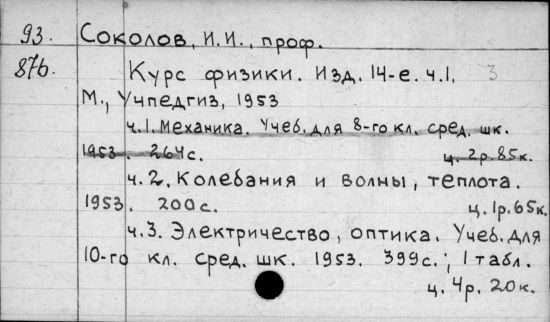 93. Соколов, И.И., проф.
87б. Курс физики. Изд. 14-е. ч.1. 3
М., Учпедгиз, 1953
ч.1. Механика. Учеб. для 8-го кл. сред. шк.
1953. 264с. ц. 2р.85к.
ч.2. Колебания и волны, теплота.
1953. 200с. ц. 1р.65к.
ч.3. Электричество, оптика. Учеб. для
10-го кл. сред. шк. 1953. 399с.; 1 табл.
ц. 4р. 20к.